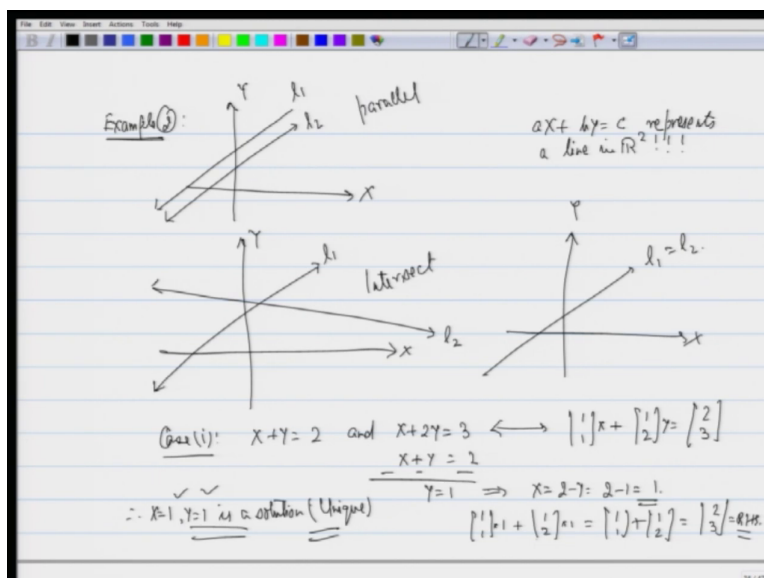 File Edit View Insert Actions Tools Help
Example ②:
Y
l₁
l₂
parallel
X
ax + by = c represents
a line in ℝ² !!!
Y
l₁
Intersect
X
l₂
Y
l₁ = l₂.
X
Case(i): x+y=2 and x+2y=3 ⟷ [1 1]x + [1 2]y = [2 3]
x+y = 2
y=1 ⟹ x=2-y= 2-1= 1.
∴ x=1, y=1 is a solution (Unique)
[1 1]·1 + [1 2]·1 = [1 1] + [1 2] = [2 3] = RHS.